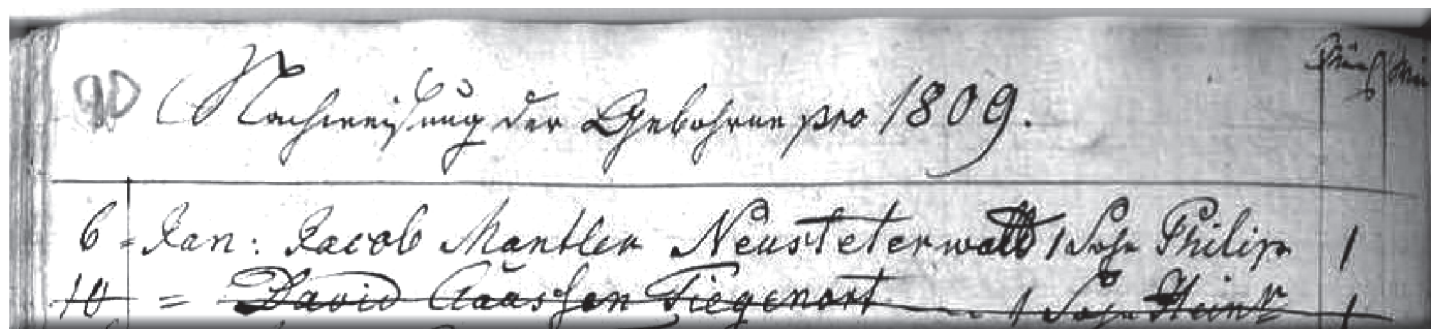 90 Nachweisung der Gebohrne pro 1809.
6 = Jan: Jacob Mantler Neusteterwaldt 1 Sohn Philipp 1
10 = David Claassen Tiegenort 1 Sohn Heinr 1